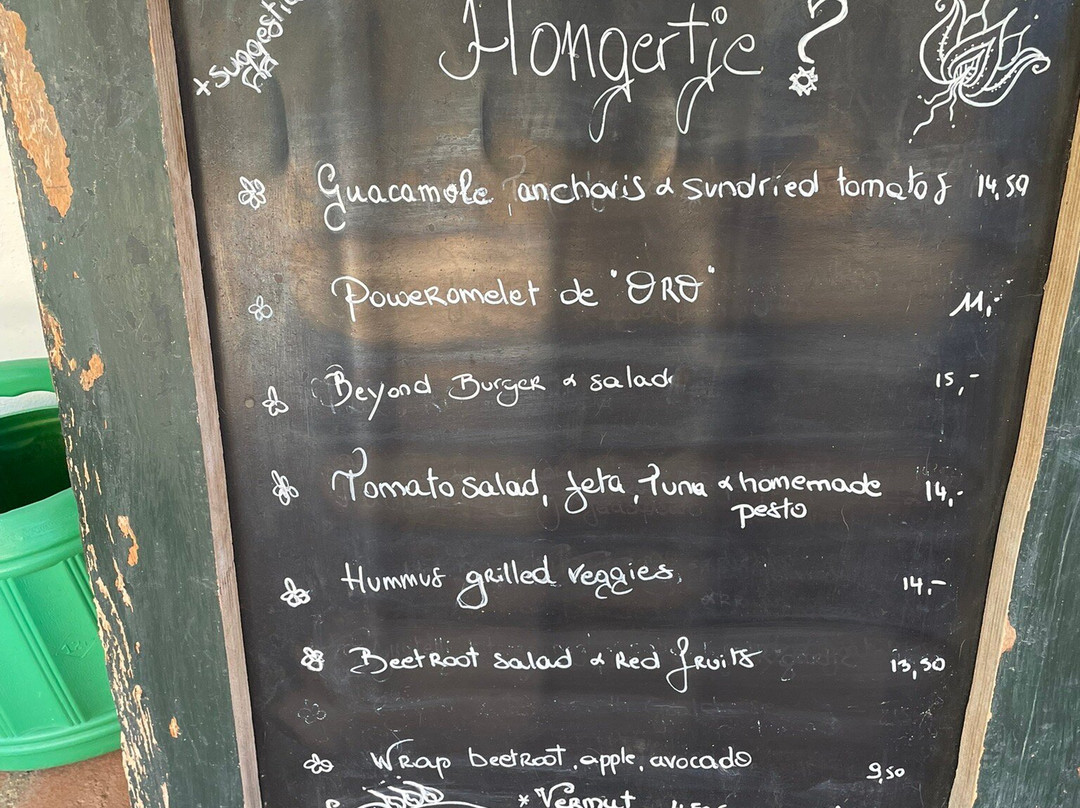 + suggesti
Hongertje ?
Guacamole, anchovis & sundried tomatos 14,50
Poweromelet de "ORO" 11,-
Beyond Burger & salad 15,-
Tomato salad, feta, Tuna & homemade 14,-
pesto
Hummus grilled veggies, 14,-
Beetroot salad & Red fruits 13,50
Wrap beetroot, apple, avocado 9,50
* Vermut